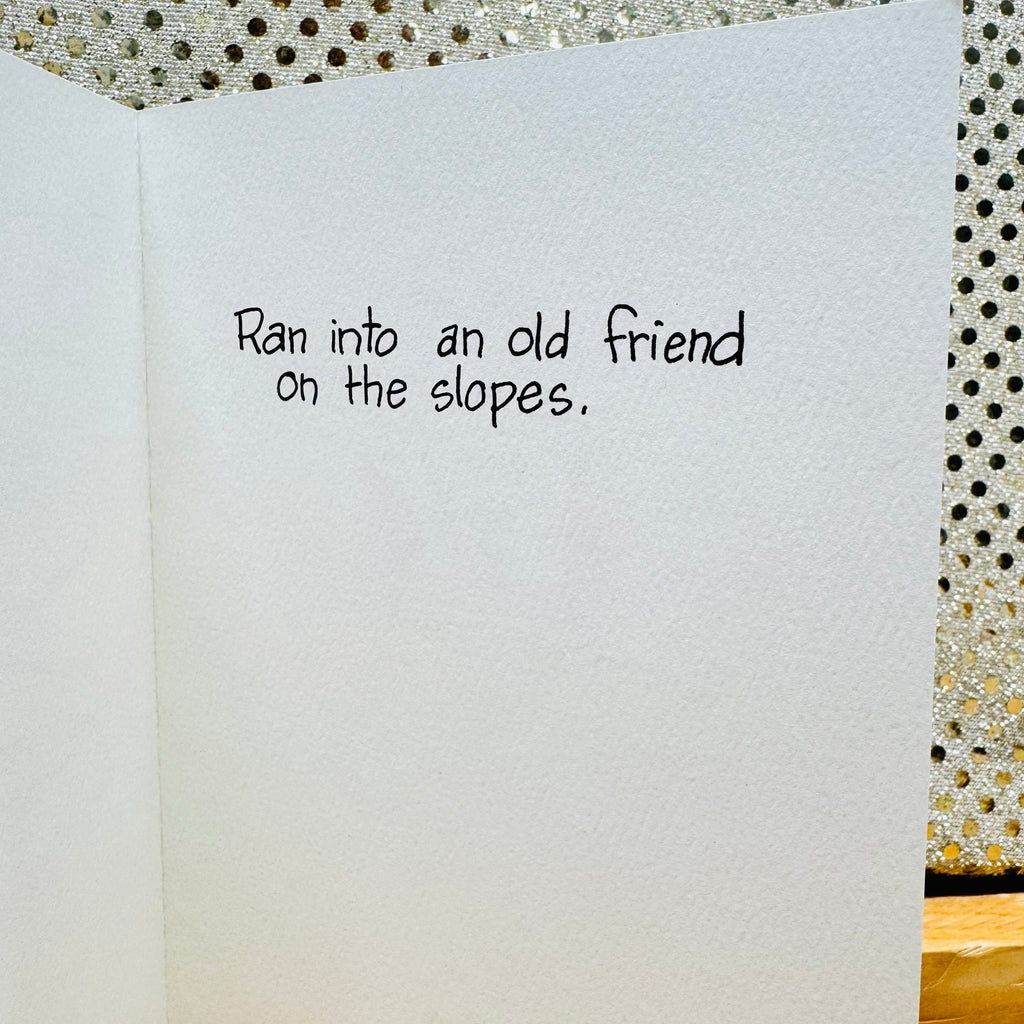 Ran into an old friend
on the slopes.